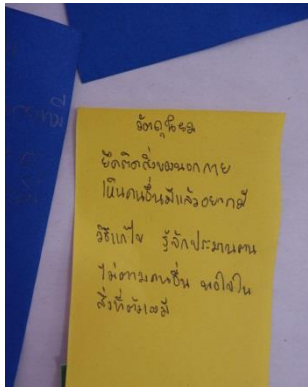 วัตถุนิยม
ยึดติดสิ่งของนอกกาย
เห็นคนอื่นมีแล้วอยากมี
วิธีแก้ไข รู้จักประมาณตน
ไม่ตามคนอื่น พอใจใน
สิ่งที่ตัวเองมี